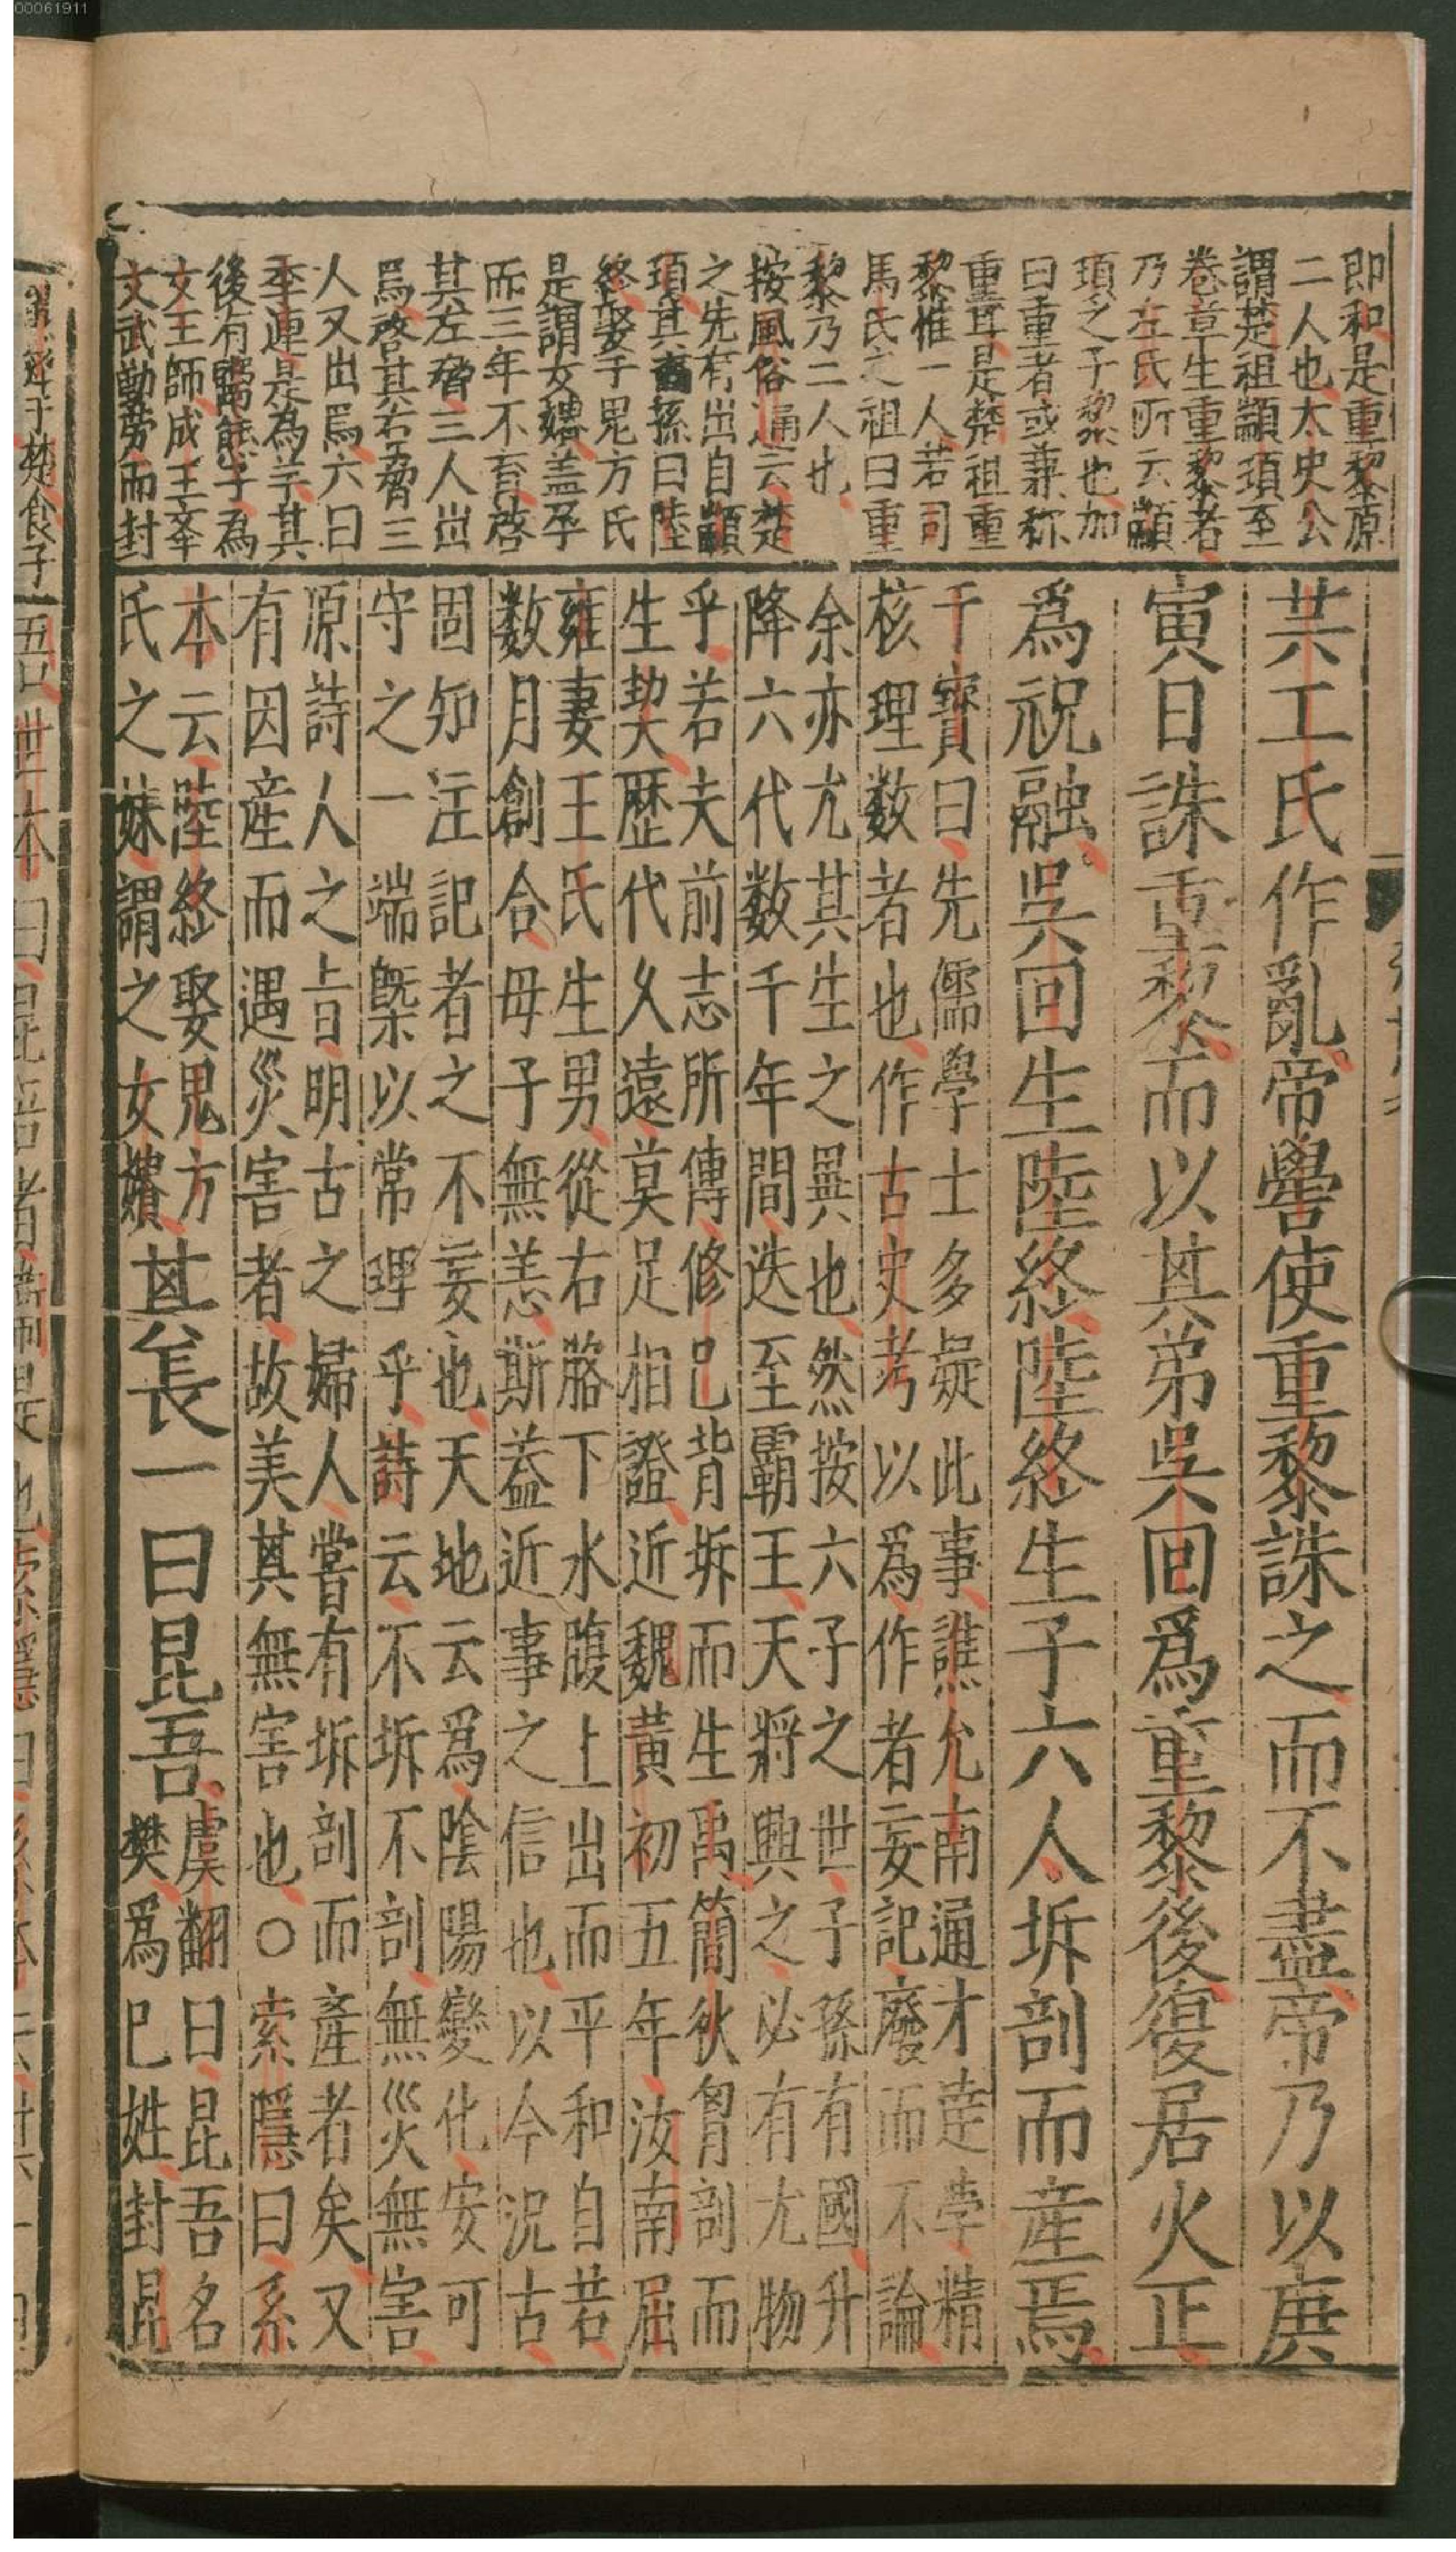 00061911
即和是重黎原
二人也太史公
謂楚祖顓頊至
卷章生重黎者
乃左氏所云顓
頊之子黎也加
曰重者或兼称
重耳是楚祖重
黎惟一人若司
馬氏之祖曰重
黎乃二人也
按風俗通云楚
之先有出自顓
頊其裔孫曰陸
終娶于鬼方氏
是謂女嬇盖孕
而三年不育啓
其左脅三人出
焉啓其右脅三
人又出焉六曰
季連是為芉其
後有鬻熊子為
文王師成王辛
文武勤勞而封
共工氏作亂帝嚳使重黎誅之而不盡帝乃以庚
寅日誅重黎而以其弟吳回爲重黎後復居火正
爲祝融吳回生陸終陸終生子六人坼剖而産焉
干寶曰先儒學士多疑此事譙允南通才達學精
核理数者也作古史考以爲作者妄記廢而不論
余亦尤其生之異也然按六子之世子孫有國升
降六代数千年間迭至霸王天將興之必有尤物
乎若夫前志所傳修己背坼而生禹簡狄胷剖而
生契歷代久遠莫足相證近魏黃初五年汝南屈
雍妻王氏生男從右胳下水腹上出而平和自若
数月創合母子無恙斯蓋近事之信也以今況古
固知注記者之不妄也天地云爲陰陽變化安可
守之一端槩以常理乎詩云不坼不剖無災無害
原詩人之旨明古之婦人嘗有坼剖而產者矣又
有因産而遇災害者故美其無害也○索隱曰系
本云陸終娶鬼方
氏之妹謂之女嬇
其長一曰昆吾
虞翻曰昆吾名
樊爲巳姓封昆